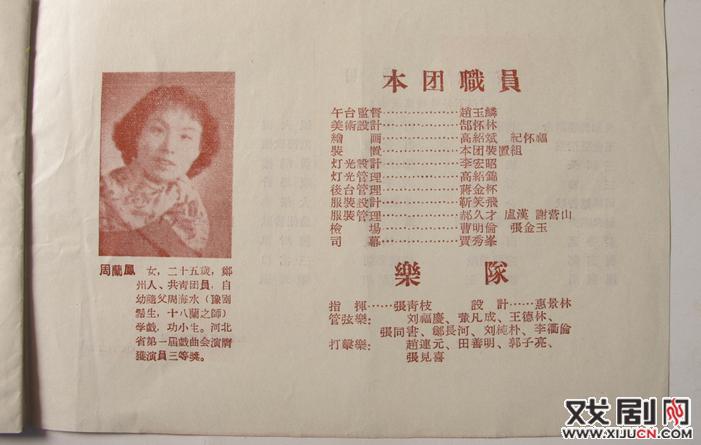 本团職員
午台監督………………趙玉鱗
美術設計………………郜怀林
繪　画………………高紹斌　紀怀福
裝　置………………本团裝置組
灯光設計………………李宏昭
灯光管理………………高紹錦
後台管理………………蔣金杯
服裝設計………………靳笑飛
服裝管理………………郝久才　盧漢　謝营山
检　場………………曹明倫　張金玉
司　幕………………賈秀峯
樂　隊
指　揮……張靑枝　設　計……惠景林
管弦樂：刘福慶、董凡成、王德林、
張同書、鄒長河、刘純朴、李衢倫
打擊樂：趙連元、田善明、郭子亮、
張見喜
周蘭鳳　女，二十五歲，鄭
州人、共靑团員，自
幼隨父周海水（豫劇
鬚生，十八蘭之師）
学戲，功小生。河北
省第一届戲曲会演膺
獲演員三等奬。
戏剧网
www.XIJUCN.COM